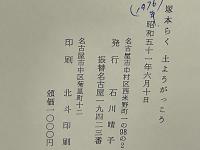 塚本らく 土ようがっこう
1976年
昭和五十一年六月十日
名古屋市中村区西米野町一の98の2
発行 石川晴子
振替名古屋一九四二三番
名古屋市中区菊里町十二
印刷 北斗印刷
頒価一〇〇〇円